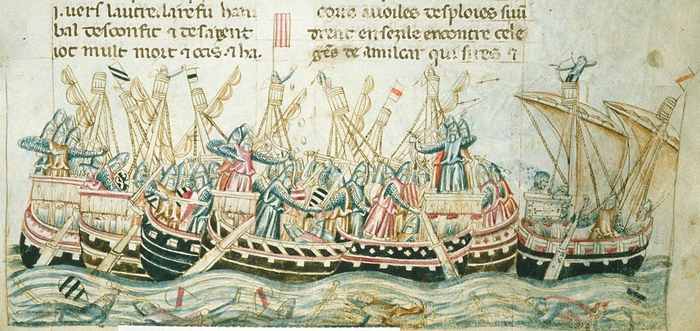 uers lautre. la refu han
bal desconfit & desa gent
iot mult mort & ocis. & ha.
auoiles desploies
drent en sezile encontre cele
gēs de amilcar qui sires &